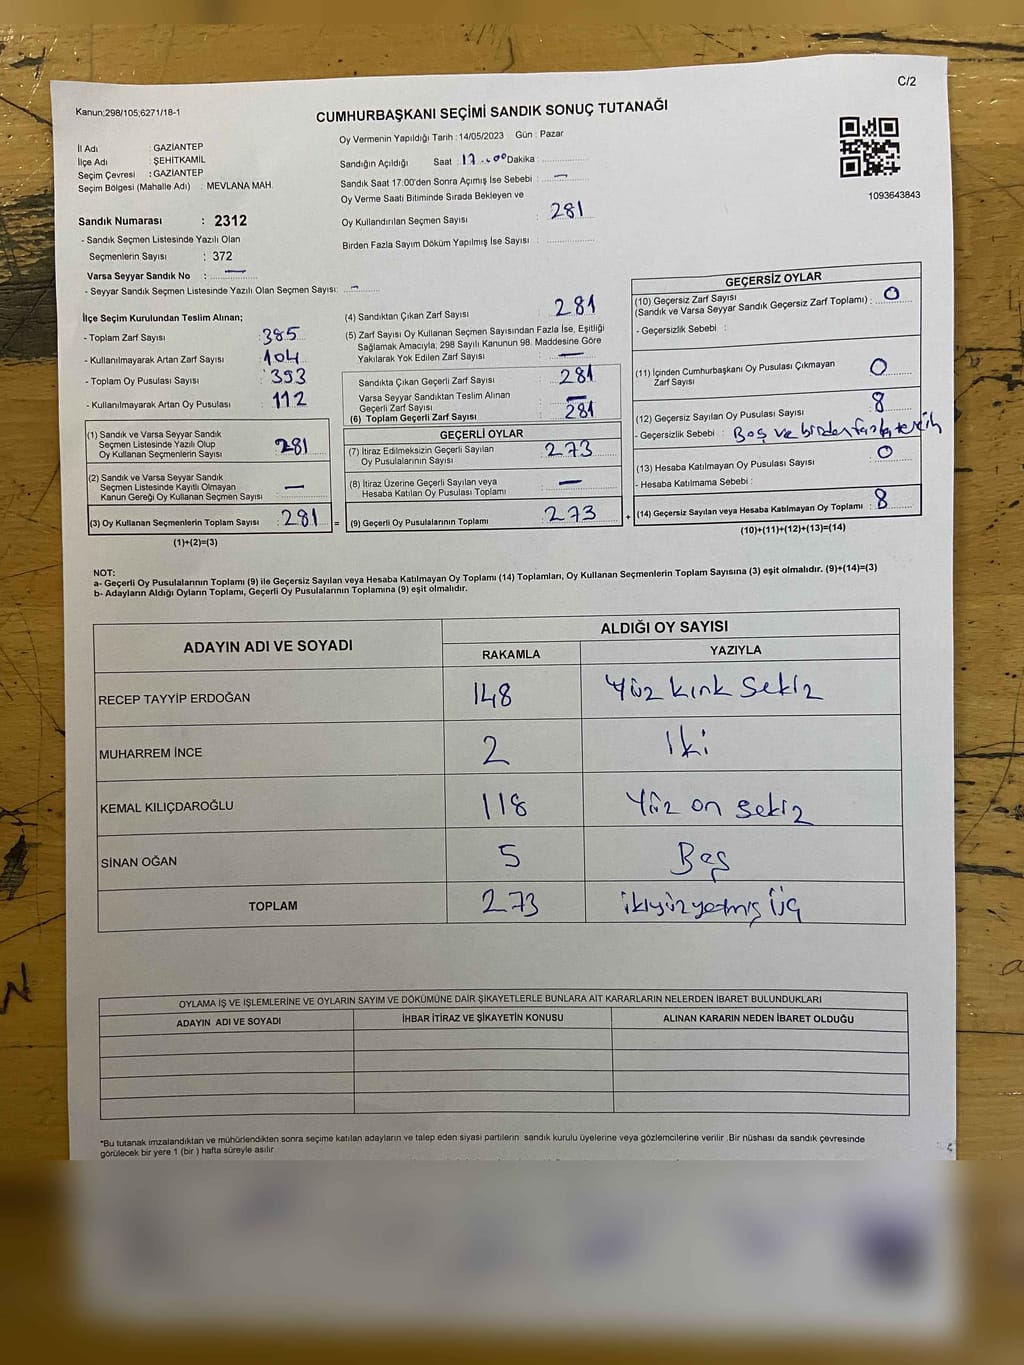 C/2
Kanun;298/105;6271/18-1
CUMHURBAŞKANI SEÇİMİ SANDIK SONUÇ TUTANAĞI
İl Adı : GAZİANTEP
İlçe Adı : ŞEHİTKAMİL
Seçim Çevresi : GAZİANTEP
Seçim Bölgesi (Mahalle Adı) : MEVLANA MAH.
Sandık Numarası : 2312
- Sandık Seçmen Listesinde Yazılı Olan
Seçmenlerin Sayısı : 372
Varsa Seyyar Sandık No : —
- Seyyar Sandık Seçmen Listesinde Yazılı Olan Seçmen Sayısı: —
Oy Vermenin Yapıldığı Tarih : 14/05/2023 Gün : Pazar
Sandığın Açıldığı Saat : 17.00 Dakika :
Sandık Saat 17:00'den Sonra Açımış İse Sebebi : —
Oy Verme Saati Bitiminde Sırada Bekleyen ve
Oy Kullandırılan Seçmen Sayısı : 281
Birden Fazla Sayım Döküm Yapılmış İse Sayısı :
1093643843
İlçe Seçim Kurulundan Teslim Alınan;
- Toplam Zarf Sayısı : 385
- Kullanılmayarak Artan Zarf Sayısı : 104
- Toplam Oy Pusulası Sayısı : 393
- Kullanılmayarak Artan Oy Pusulası : 112
(1) Sandık ve Varsa Seyyar Sandık
Seçmen Listesinde Yazılı Olup
Oy Kullanan Seçmenlerin Sayısı : 281
(2) Sandık ve Varsa Seyyar Sandık
Seçmen Listesinde Kayıtlı Olmayan
Kanun Gereği Oy Kullanan Seçmen Sayısı : —
(3) Oy Kullanan Seçmenlerin Toplam Sayısı : 281 =
(1)+(2)=(3)
(4) Sandıktan Çıkan Zarf Sayısı : 281
(5) Zarf Sayısı Oy Kullanan Seçmen Sayısından Fazla İse, Eşitliği
Sağlamak Amacıyla; 298 Sayılı Kanunun 98. Maddesine Göre
Yakılarak Yok Edilen Zarf Sayısı : —
Sandıkta Çıkan Geçerli Zarf Sayısı : 281
Varsa Seyyar Sandıktan Teslim Alınan
Geçerli Zarf Sayısı : —
(6) Toplam Geçerli Zarf Sayısı : 281
GEÇERLİ OYLAR
(7) İtiraz Edilmeksizin Geçerli Sayılan
Oy Pusulalarının Sayısı : 273
(8) İtiraz Üzerine Geçerli Sayılan veya
Hesaba Katılan Oy Pusulası Toplamı : —
(9) Geçerli Oy Pusulalarının Toplamı : 273 +
GEÇERSİZ OYLAR
(10) Geçersiz Zarf Sayısı
(Sandık ve Varsa Seyyar Sandık Geçersiz Zarf Toplamı) : 0
- Geçersizlik Sebebi :
(11) İçinden Cumhurbaşkanı Oy Pusulası Çıkmayan
Zarf Sayısı : 0
(12) Geçersiz Sayılan Oy Pusulası Sayısı : 8
- Geçersizlik Sebebi : Boş ve birden fazla tercih
(13) Hesaba Katılmayan Oy Pusulası Sayısı : 0
- Hesaba Katılmama Sebebi :
(14) Geçersiz Sayılan veya Hesaba Katılmayan Oy Toplamı : 8
(10)+(11)+(12)+(13)=(14)
NOT:
a- Geçerli Oy Pusulalarının Toplamı (9) ile Geçersiz Sayılan veya Hesaba Katılmayan Oy Toplamı (14) Toplamları, Oy Kullanan Seçmenlerin Toplam Sayısına (3) eşit olmalıdır. (9)+(14)=(3)
b- Adayların Aldığı Oyların Toplamı, Geçerli Oy Pusulalarının Toplamına (9) eşit olmalıdır.
ADAYIN ADI VE SOYADI ALDIĞI OY SAYISI
RAKAMLA YAZIYLA
RECEP TAYYİP ERDOĞAN 148 Yüz kırk sekiz
MUHARREM İNCE 2 İki
KEMAL KILIÇDAROĞLU 118 Yüz on sekiz
SİNAN OĞAN 5 Beş
TOPLAM 273 ikiyüzyetmiş üç
OYLAMA İŞ VE İŞLEMLERİNE VE OYLARIN SAYIM VE DÖKÜMÜNE DAİR ŞİKAYETLERLE BUNLARA AİT KARARLARIN NELERDEN İBARET BULUNDUKLARI
ADAYIN ADI VE SOYADI İHBAR İTİRAZ VE ŞİKAYETİN KONUSU ALINAN KARARIN NEDEN İBARET OLDUĞU
*Bu tutanak imzalandıktan ve mühürlendikten sonra seçime katılan adayların ve talep eden siyasi partilerin sandık kurulu üyelerine veya gözlemcilerine verilir .Bir nüshası da sandık çevresinde
görülecek bir yere 1 (bir ) hafta süreyle asılır